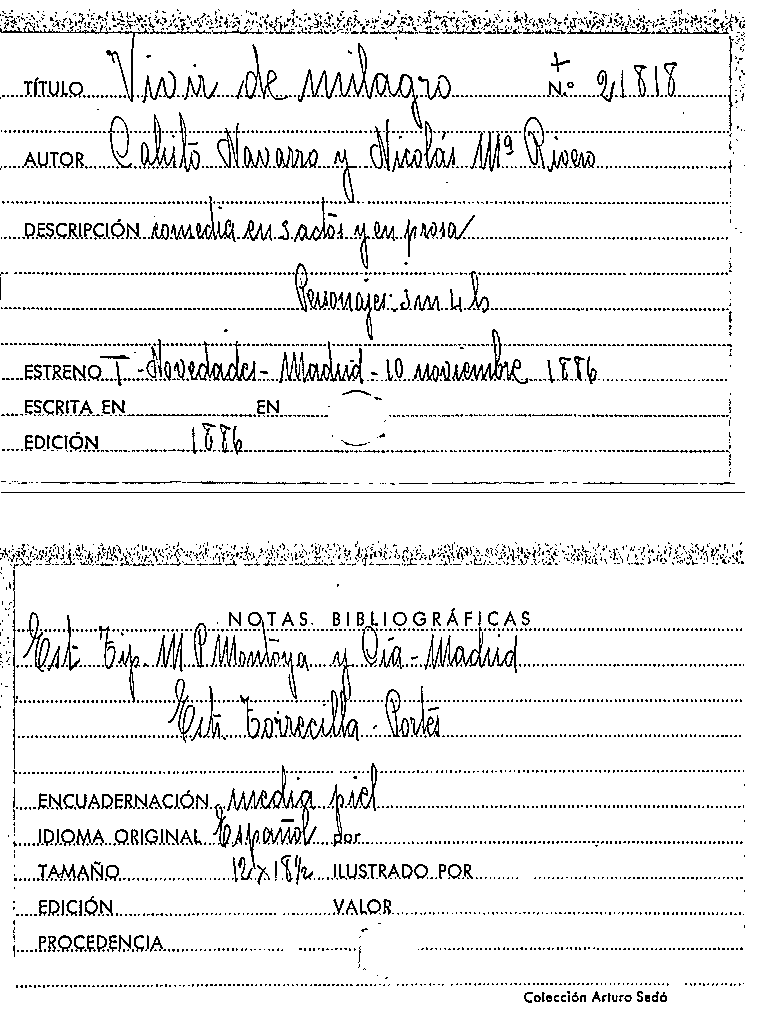 TÍTULO Vivir de milagro + N.º 21818
AUTOR Calisto Navarro y Nicolás Mª Rivero
DESCRIPCIÓN comedia en 3 actos y en prosa
Personajes: 3 m 4 h
ESTRENO T - Novedades - Madrid - 10 noviembre 1886
ESCRITA EN EN
EDICIÓN 1886
NOTAS BIBLIOGRÁFICAS
Est. Tip. M P Montoya y Cía - Madrid
Estr. Torrecilla - Portes
ENCUADERNACIÓN media piel
IDIOMA ORIGINAL Español por
TAMAÑO 12 x 18½ ILUSTRADO POR
EDICIÓN VALOR
PROCEDENCIA
Colección Arturo Sedó